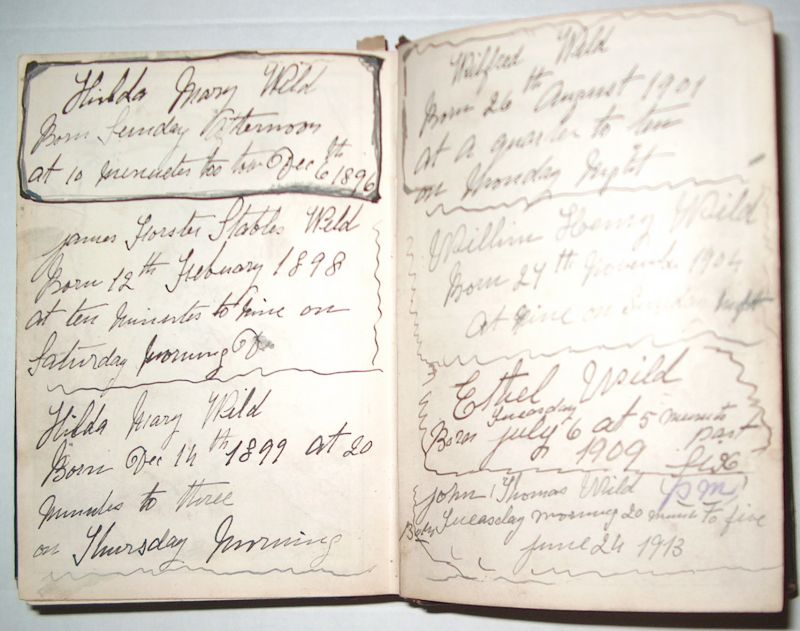 Hilda Mary Wild
Born Sunday Afternoon
at 10 minutes too tow Dec 6th 1896
james Forster Stables Wild
Born 12th Febuary 1898
at ten minutes to Nine on
Saturday Morning
Hilda Mary Wild
Born Dec 14th 1899 at 20
minutes to three
on Thursday Morning
Wilfred Wild
Born 26th August 1901
at a quarter to ten
on Monday Night
Willim Henry Wild
Born 27th November 1904
at Nine on Sunday Night
Ethel Wild
Born Tuesday july 6 at 5 minuts
1909 past
six
john Thomas Wild pm
Born Tueasday morning 20 minuts To five
june 24 1913